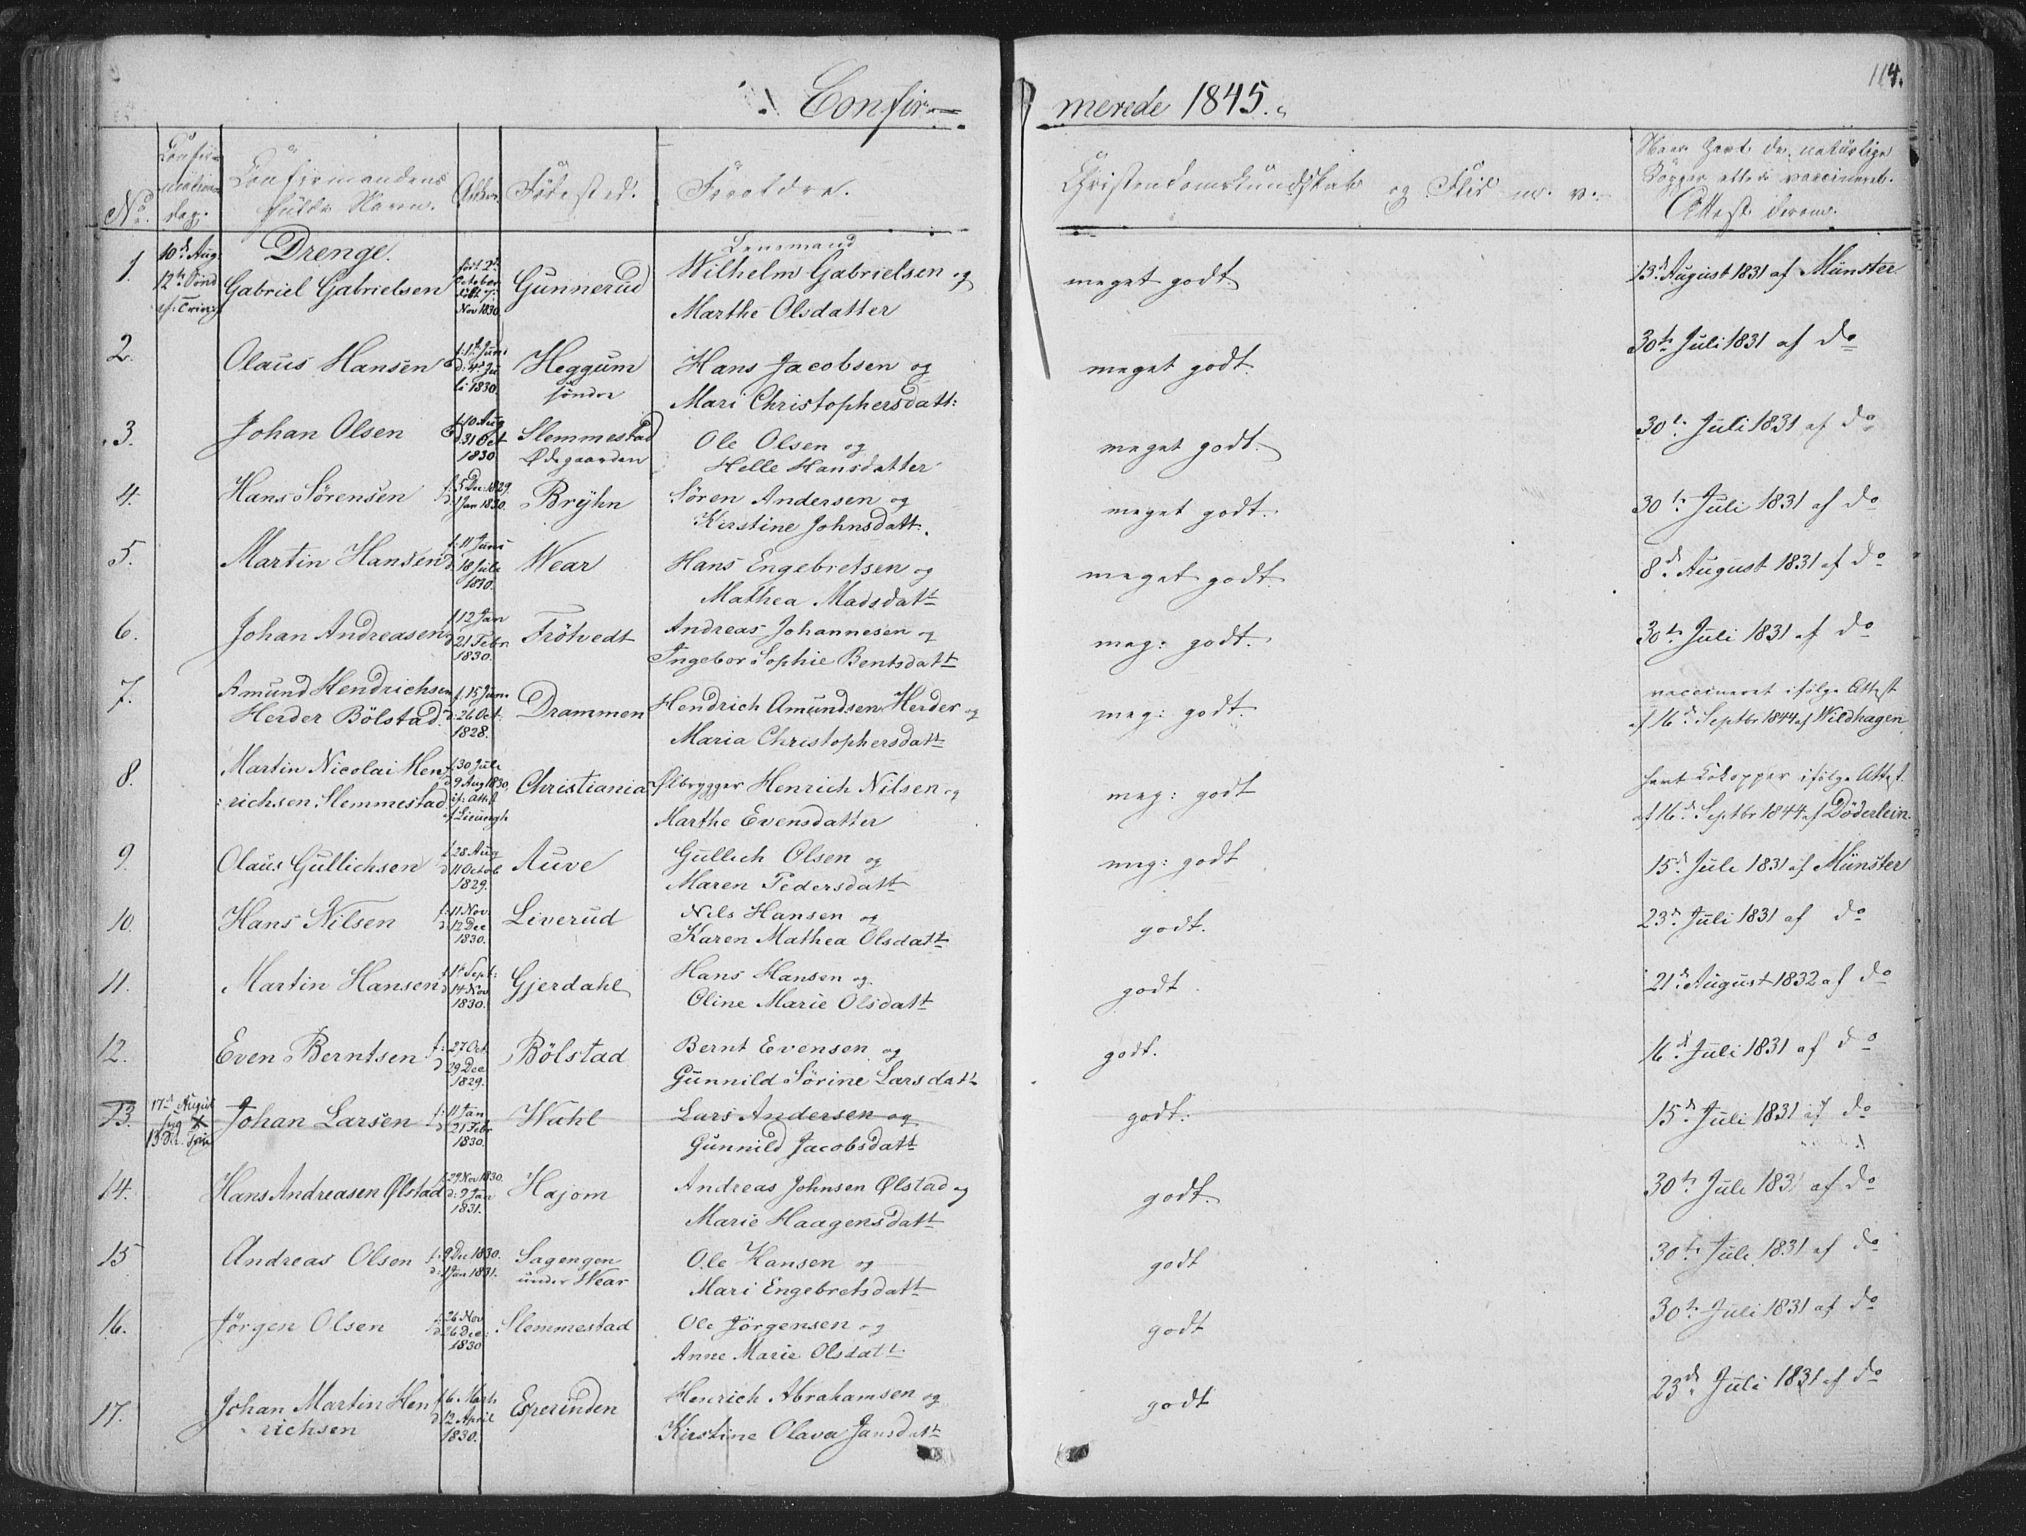 Confir-
merede 1845.
114.
No.
Confir-
mations
dag.
Confirmandens
fulde Navn.
Alder.
Födested.
Forældre.
Christendomskundskab og Flid m. v.
Naar havt de naturlige
Kopper eller vaccineret.
Attest derom.
Drenge.
1. 10d Aug. 12te Sönd. ef: Trinit Gabriel Gabrielsen födt 2d October döbt Nov 1830. Gunnerud
Lensmand
Wilhelm Gabrielsen og
Marthe Olsdatter
meget godt
13d August 1831 af Münster
2. Olaus Hansen f: Juni d: 4d Ju li 1830. Heggum
söndre
Hans Jacobsen og
Mari Christophersdatt:
meget godt.
30te Juli 1831 af do
3. Johan Olsen f. 10 Aug d. 31 Oct 1830 Slemmestad
Ødegaarden
Ole Olsen og
Helle Hansdatter
meget godt.
30te Juli 1831 af do
4. Hans Sørensen f. 5 Dec 1829. d. 1 Jan 1830. Brÿhn
Søren Andersen og
Kirstine Johnsdatt.
meget godt.
30te Juli 1831 af do
5. Martin Hansen f: 11 Juni d 18 Juli 1830. Wear
Hans Engebretsen og
Mathea Madsdatt
meget godt.
8d August 1831 af do
6. Johan Andreasen f 12 Jan d 21 Febr 1830. Frötvedt
Andreas Johannesen og
Ingebor Sophie Bentsdatt
meg: godt.
30te Juli 1831 af do
7. Amund Hendrichsen
Herder Bölstad f. 15 Juni d. 26 Oct. 1828. Drammen
Hendrich Amundsen Herder og
Maria Christophersdatt
meg: godt.
vaccineret ifölge Attest
af 16d Septbr 1844 af Wildhagen
8. Martin Nicolai Hen
richsen Slemmestad f. 30 Juli d 9 Aug 1830, if: Attest af Lieungh Christiania
Ølbrygger Henrich Nilsen og
Marthe Evensdatter
meg: godt
havt Kokopper ifölge Attest
af 16d Septbr 1844 af Döderlein.
9. Olaus Gullichsen f. 28 Aug d 11 Octob 1829. Auve
Gullich Olsen og
Maren Pedersdatt
meg: godt
15d Juli 1831 af Münster
10. Hans Nilsen f: 11 Nov. d: 12 Dec 1830. Liverud
Nils Hansen og
Karen Mathea Olsdatt
godt.
23d Juli 1831 af do
11. Martin Hansen Sept: d 14 Nov 1830. Gjerdahl
Hans Hansen og
Oline Marie Olsdatt
godt
21d August 1832 af do
12. Even Berntsen f: 27 Oct d 29 Dec 1829. Bölstad
Bernt Evensen og
Gunnild Sørine Larsdatt
godt.
16d Juli 1831 af do
13. 17d August Johan Larsen f: 11 Jan d 21 Febr 1830. Wahl
Lars Andersen og
Gunnild Jacobsdatt
godt.
15d Juli 1831 af do
14. Hans Andreasen Ølstad f. 29 Nov 1830. d: 9 Jan 1831. Hajom
Andreas Johnsen Ølstad og
Marie Haagensdatt
godt.
30te Juli 1831 af do
15 Andreas Olsen f. 9 Dec 1830. d: 1 Jan 1831. Sagengen
under Wear
Ole Hansen og
Mari Engebretsdatt
godt
30te Juli 1831 af do
16. Jörgen Olsen f. 26 Nov d 26 Dec: 1830 Slemmestad
Ole Jörgensen og
Anne Marie Olsdatt.
godt
30te Juli 1831 af do
17. Johan Martin Hen
richsen f 6 Marts d 12 April 1830. Esperunden
Henrich Abrahamsen og
Kirstine Olava Jansdatt
godt
23d Juli 1831 af do